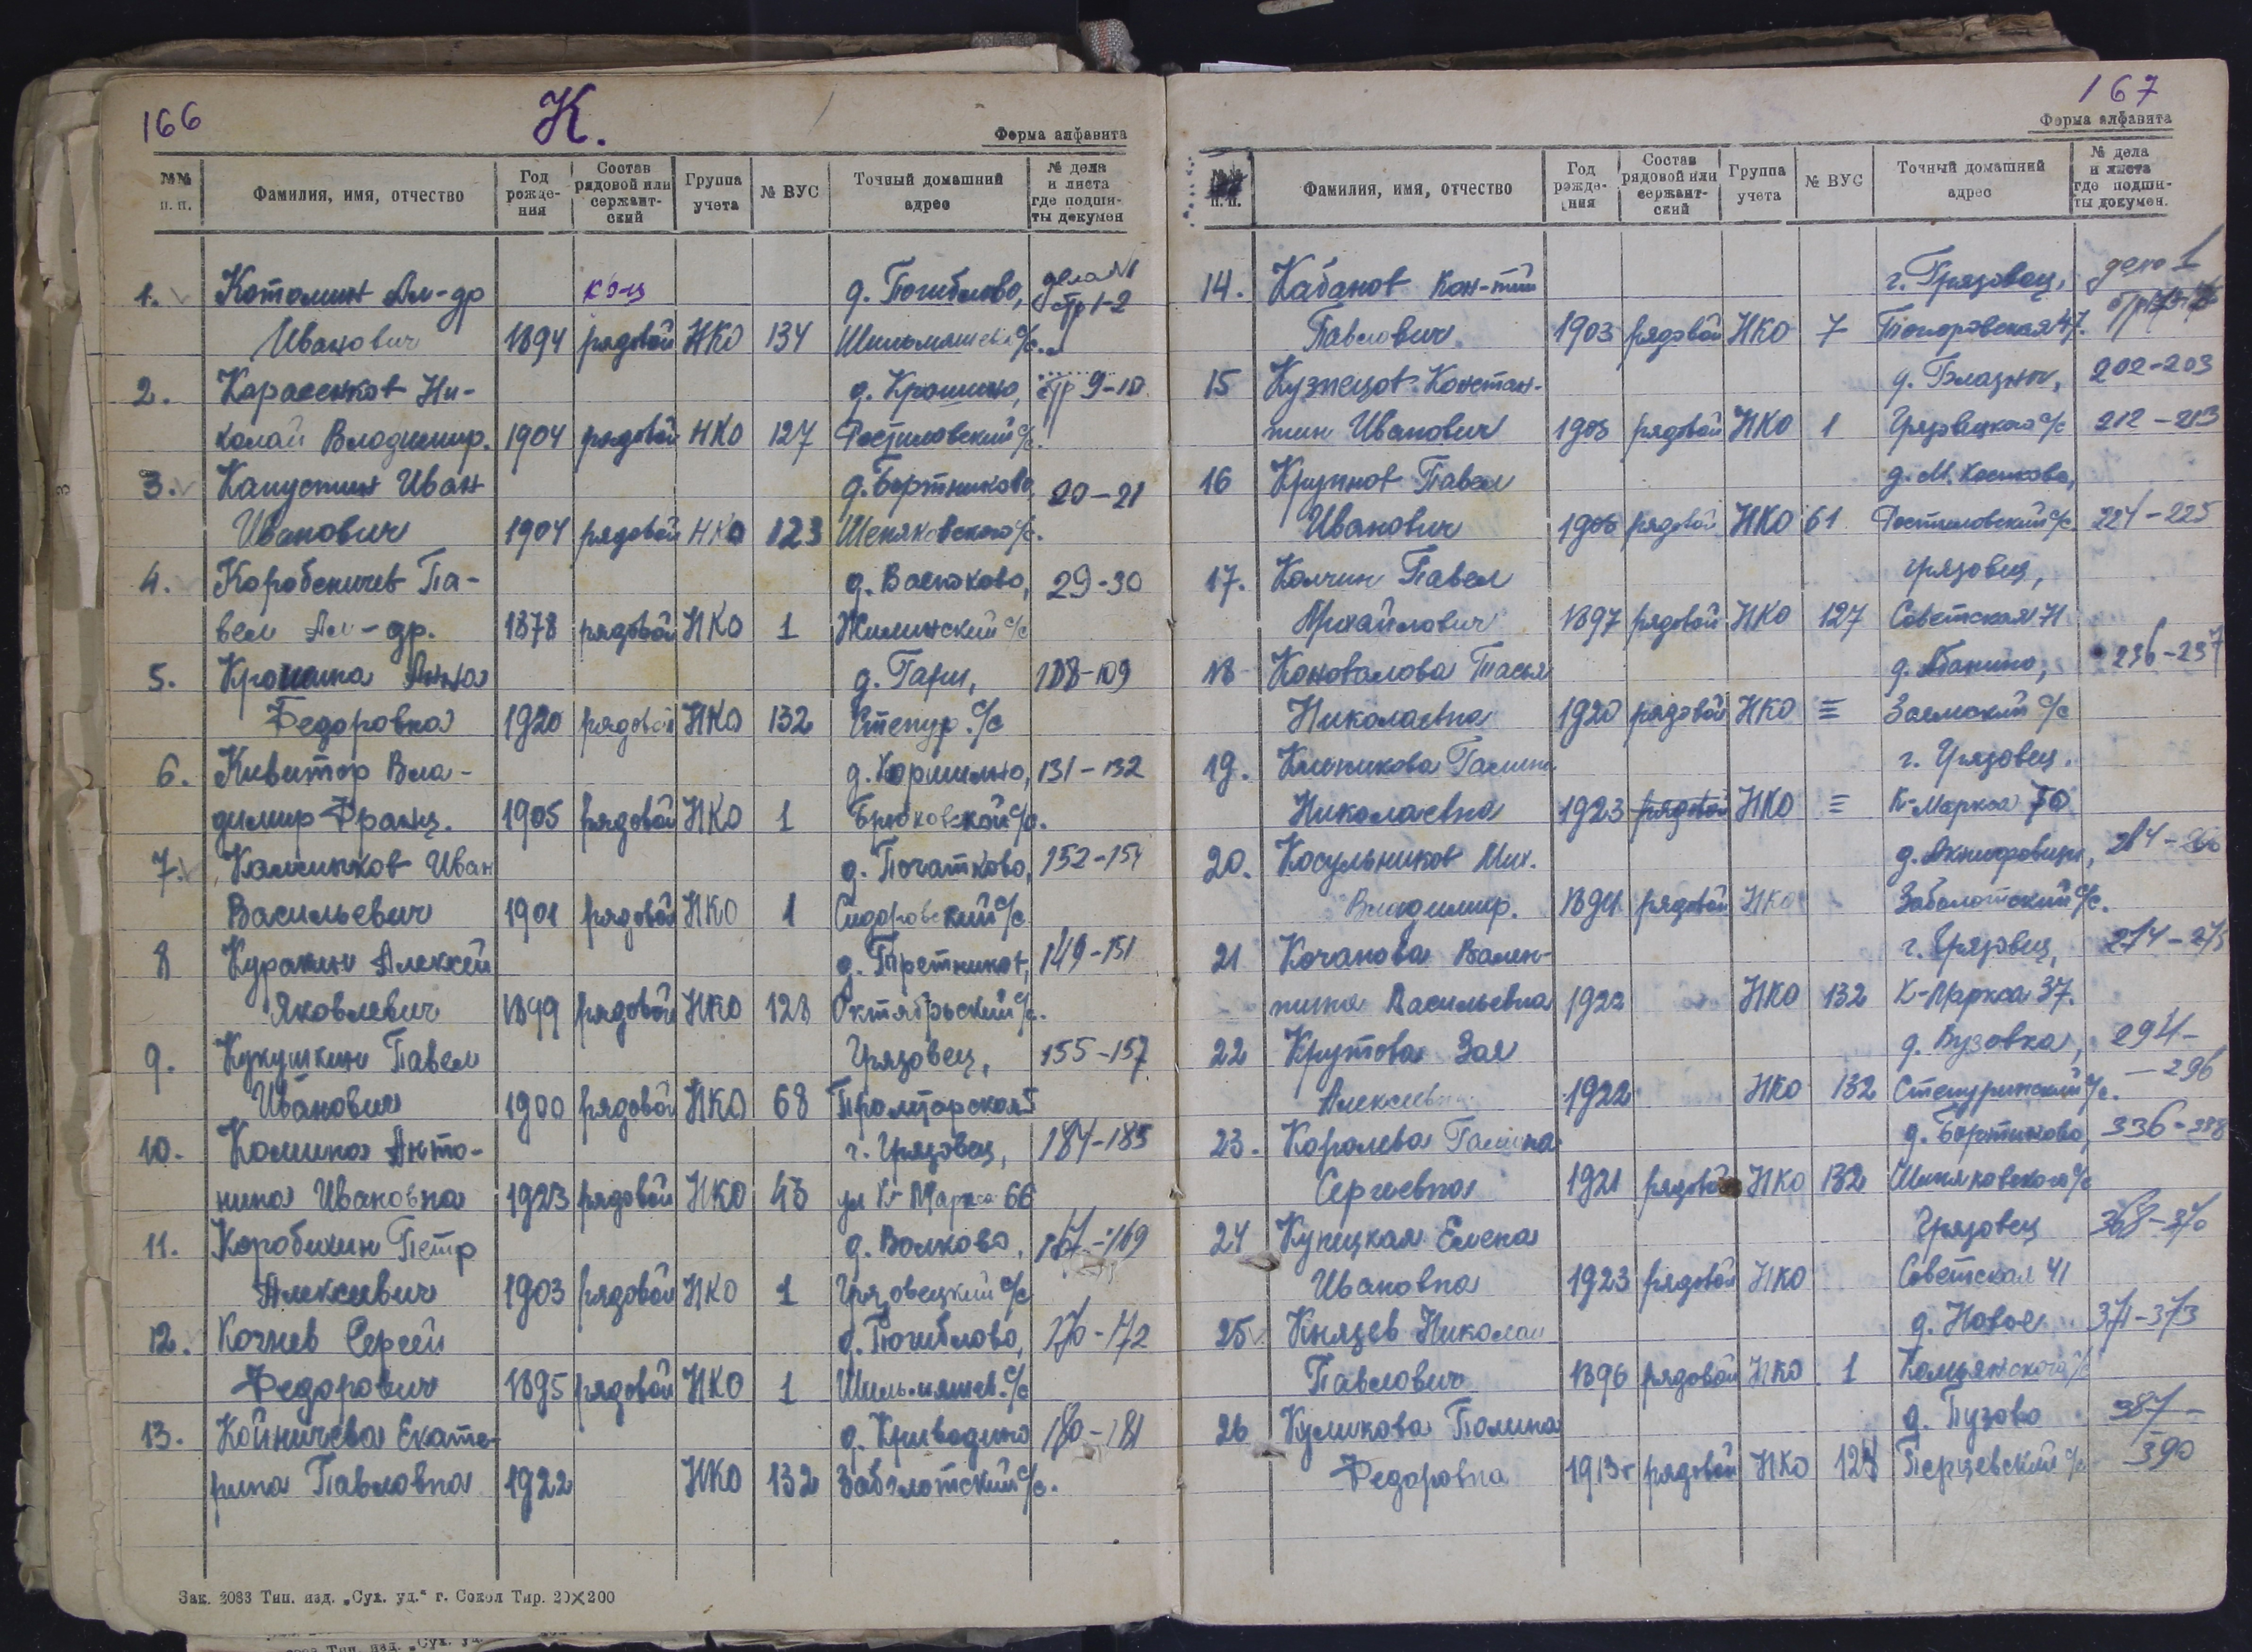 166
К.
Форма алфавита
№№ п. п. Фамилия, имя, отчество Год рожде-ния Состав рядовой или сержант-ский Группа учета № ВУС Точный домашний адрес № дела и листа где подши-ты докумен
1. Котомин Ал-др к-ц д. Погиблово, дела №1 стр 1-2
Иванович 1894 рядовой НКО 134 с/с.
2. Карасенков Ни- д. Крошино, стр 9-10
колай Владимир. 1904 рядовой НКО 127 Ростиловский с/с.
3. Капустин Иван д. Бортниково 20-21
Иванович 1904 рядовой НКО 123 Шеняковского с/с.
4. Коробеничев Па- д. Васюково, 29-30
вел Ал-др. 1878 рядовой НКО 1 Жилинский с/с
5. Анна д. Гари, 108-109
Федоровна 1920 рядовой НКО 132 Степур. с/с
6. Кивитор Вла- 131-132
димир Франц. 1905 рядовой НКО 1 с/с.
7. Иван д. Початково, 152-154
Васильевич 1901 рядовой НКО 1 Сидоровский с/с
8 Куракин Алексей д. Третников, 149-151
Яковлевич 1899 рядовой НКО 128 Октябрьский с/с.
9. Кукушкин Павел Грязовец, 155-157
Иванович 1900 рядовой НКО 68
10. Комина Анто- г. Грязовец, 184-185
нина Ивановна 1923 рядовой НКО ул К-Маркса 66
11. Коробихин Петр д. Волково, 167-169
Алексеевич 1903 рядовой НКО 1 Грязовецкий с/с
12. Кочнев Сергей д. Погиблово, 170-172
Федорович 1895 рядовой НКО 1 с/с
13. Койничева Екате- д. Криводино 180-181
рина Павловна 1922 НКО 132 Заболотский с/с.
Зак. 2083 Тип. изд. „Сух. уд.“ г. Сокол Тир. 20×200
167
Форма алфавита
п. п. Фамилия, имя, отчество Год рожде-ния Состав рядовой или сержант-ский Группа учета № ВУС Точный домашний адрес № дела и листа где подши-ты докумен.
14. Кабанов Кон-тин г. Грязовец, дело 1
Павлович 1903 рядовой НКО 7
15 Кузнецов Констан- 202-203
тин Иванович рядовой НКО 1 Грязовецкого с/с 212-213
16 Крупнов Павел д. М. Косиково,
Иванович 1906 рядовой НКО 61 Ростиловский с/с. 224-225
17. Колчин Павел Грязовец,
Михайлович 1897 рядовой НКО 127 Советская
18 Коновалова Тасья 236-237
Николаевна 1920 рядовой НКО = с/с
19. Галина г. Грязовец.
Николаевна 1923 рядовой НКО = К-Маркса 70
20. Косульников Мих.
Владимир. рядовой НКО Заболотский с/с.
21 Кочанова Вален- г. Грязовец, 274-275
тина Васильевна 1922 НКО 132 К-Маркса 37.
22 Крутова Зоя д. Пузовка, 294-
Алексеевна 1922 НКО 132 Степуринский с/с. -296
23. Королева Галина д. Бортниково,
Сергеевна 1921 рядовой НКО 132 с/с
24 Купецкая Елена Грязовец 368-370
Ивановна 1923 рядовой НКО Советская 41
25 Князев Николай д. Новое 371-373
Павлович 1896 рядовой НКО 1 Комьянского с/с
26 Куликова Полина д. Пузово 387-
Федоровна 1913г рядовой НКО Перцевский с/с 390